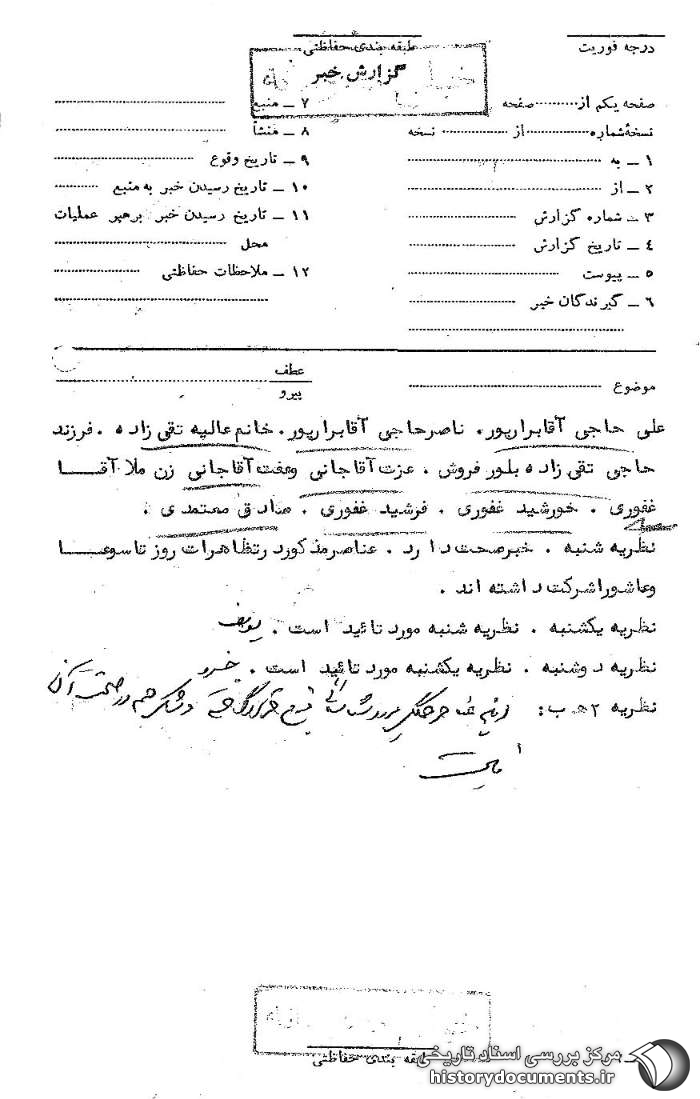 درجه فوریت
طبقه بندی حفاظتی
گزارش خبر
صفحه یکم از ........... صفحه
نسخهٔ شماره ............... از ............... نسخه
۱ ــ به
۲ ــ از
۳ ــ شماره گزارش
۴ ــ تاریخ گزارش
۵ ــ پیوست
۶ ــ گیرندگان خبر
۷ ــ منبع
۸ ــ منشأ
۹ ــ تاریخ وقوع
۱۰ ــ تاریخ رسیدن خبر به منبع
۱۱ ــ تاریخ رسیدن خبر برهبر عملیات
محل
۱۲ ــ ملاحظات حفاظتی
موضوع
عطف
پیرو
علی حاجی آقابرارپور. ناصر حاجی آقابرارپور. خانم عالیه تقی زاده . فرزند
حاجی تقی زاده بلور فروش . عزت آقاجانی وعفت آقاجانی زن ملا آقا
غفوری . خورشید غفوری . فرشید غفوری . صادق معتمدی .
نظریه شنبه . خبرصحت دارد . عناصر مذکور درتظاهرات روز تاسوعا
وعاشورا شرکت داشته اند .
نظریه یکشنبه . نظریه شنبه مورد تائید است .
نظریه دوشنبه . نظریه یکشنبه مورد تائید است . خسرو
نظریه ۲ هـ ب :
طبقه بندی حفاظتی
مرکز بررسی اسناد تاریخی
historydocuments.ir